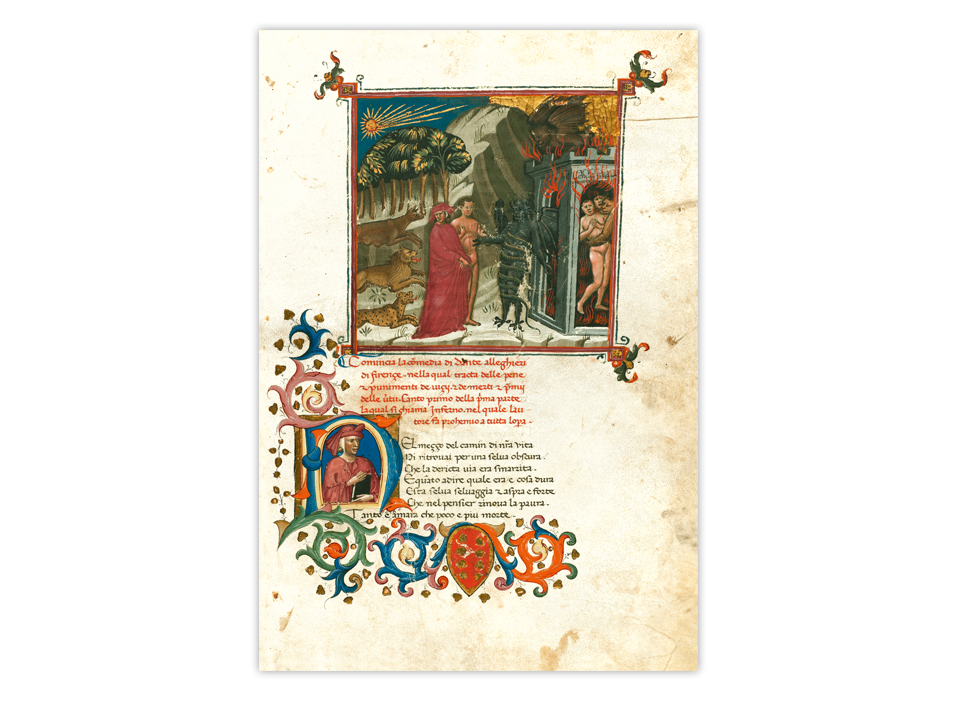 Comincia la cōmedia di Dante alleghieri
di firençe. nella qual tracta delle pene
⁊ punimenti de uiçij. ⁊ demeriti ⁊ p̄mij
delle ūtu. Canto primo della p̄ma parte
la qual si chiama Inferno. nel quale lau-
tore fa prohemio a tutta lopa.
NEl meçço del camin di nr̄a vita
Mi ritrouai per una selua obscura.
Che la dericta via era smarrita.
E quāto a dire quale era e cosa dura
Esta selua seluaggia ⁊ aspra e forte
Che nel pensier rinoua la paura.
Tanto e amara che poco e piu morte.